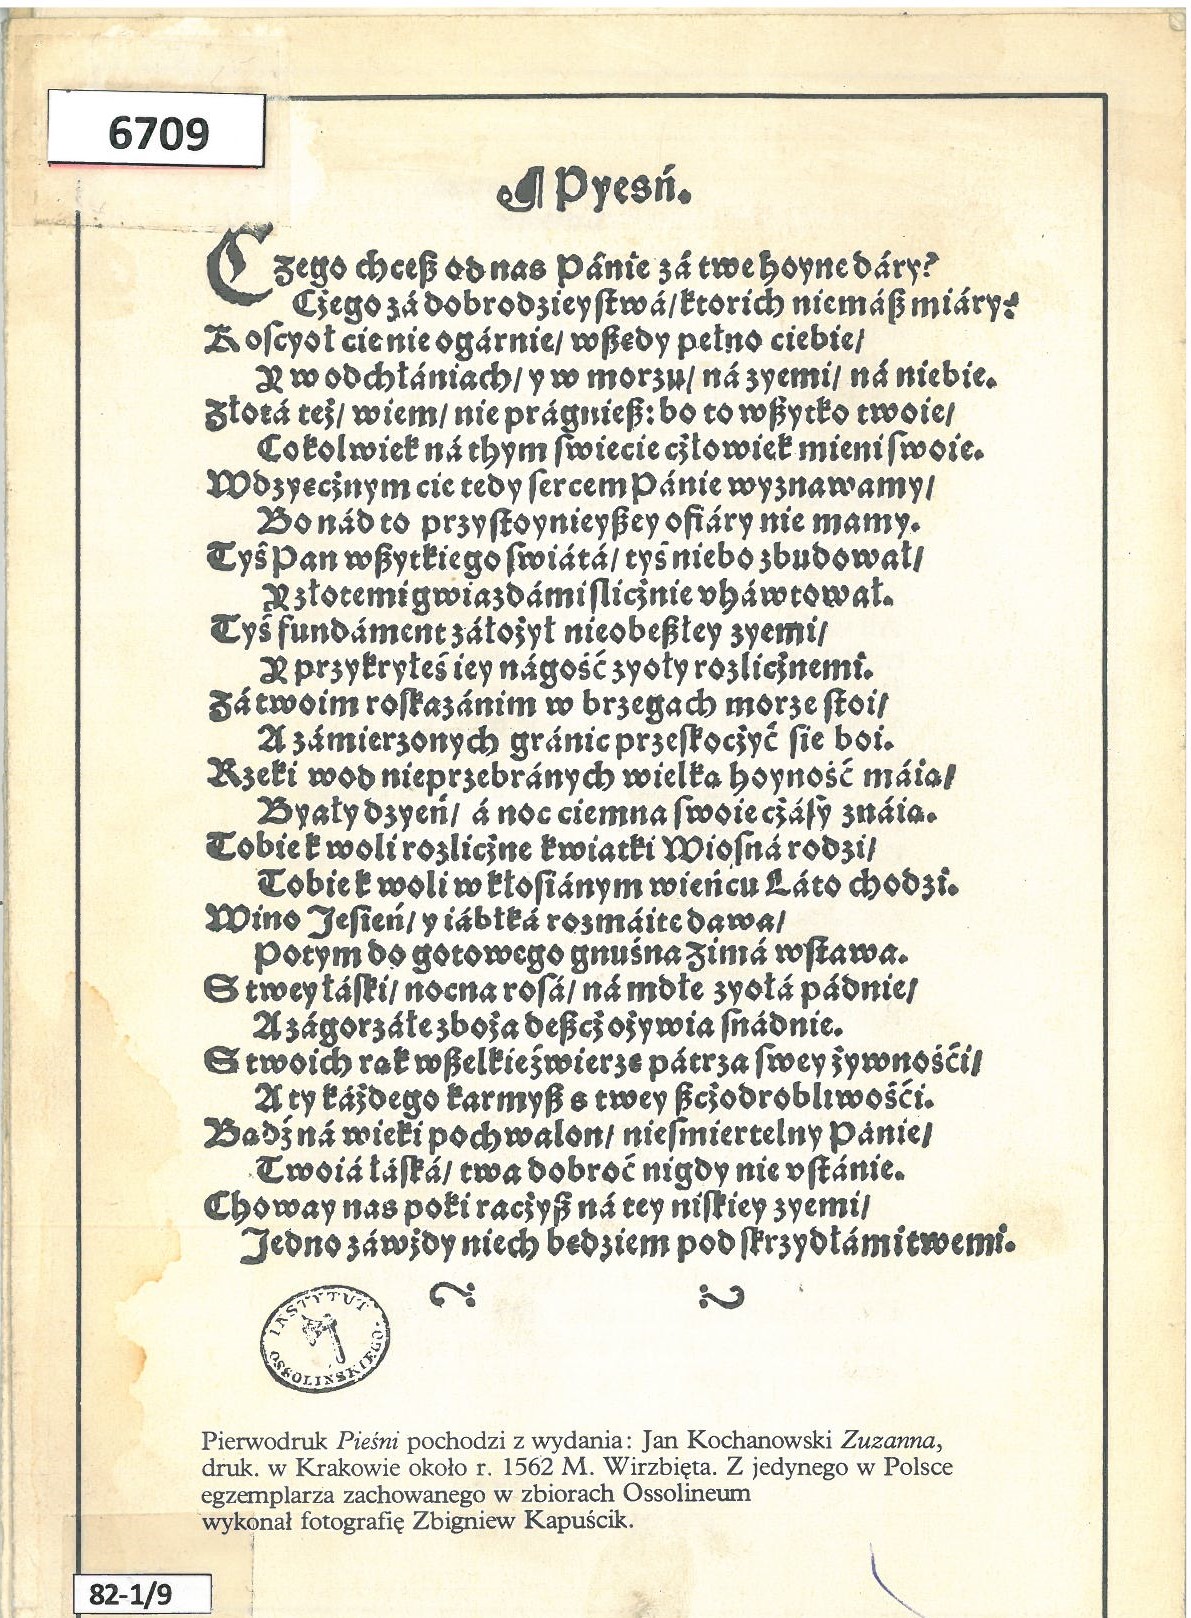 6709
¶ Pyesń.
Cżego chceß od nas Pánie zá twe hoyne dáry?
Cżego zá dobrodzieystwá/ ktorich niemáß miáry?
Koscyoł cie nie ogárnie/ wßędy pełno ciebie/
Y w odchłániach/ y w morzu/ ná zyemi/ ná niebie.
Złotá też/ wiem/ nie prágnieß: bo to wßytko twoie/
Cokolwiek ná thym świecie cżłowiek mieni swoie.
Wdzyęcżnym cie tedy sercem Pánie wyznawamy/
Bo nád to przystoynieyßey ofiáry nie mamy.
Tyś Pan wßytkiego swiátá/ tyś niebo zbudował/
Y złotemi gwiazdámi slicżnie vháwtował.
Tyś fundáment záłożył nieobeßłey zyemi/
Y przykryłeś iey nágość zyoły rozlicżnemi.
Zá twoim roskazánim w brzegach morze stoi/
A zámierzonych gránic przeskocżyć sie boi.
Rzeki wod nieprzebránych wielką hoyność máią/
Byały dzyeń/ á noc ciemna swoie cżásy znáią.
Tobie k woli rozlicżne kwiatki Wiosná rodzi/
Tobie k woli w kłosiánym wieńcu Láto chodzi.
Wino Jesień/ y iábłká rozmáite dawa/
Potym do gotowego gnuśna Zimá wstawa.
S twey łáski/ nocna rosá/ ná mdłe zyołá pádnie/
A zágorzáłe zboża deßcż ożywia snádnie.
S twoich rąk wßelkie źwierzę pátrza swey żywnośći/
A ty káżdego karmyß s twey ßcżodrobliwośći.
Bądź ná wieki pochwalon/ niesmiertelny Pánie/
Twoiá łáská/ twa dobroć nigdy nie vstánie.
Choway nas poki racżyß ná tey niskiey zyemi/
Jedno záwżdy niech będziem pod skrzydłámi twemi.
INSTYTUT OSSOLIŃSKIEGO
Pierwodruk Pieśni pochodzi z wydania: Jan Kochanowski Zuzanna,
druk. w Krakowie około r. 1562 M. Wirzbięta. Z jedynego w Polsce
egzemplarza zachowanego w zbiorach Ossolineum
wykonał fotografię Zbigniew Kapuścik.
82-1/9